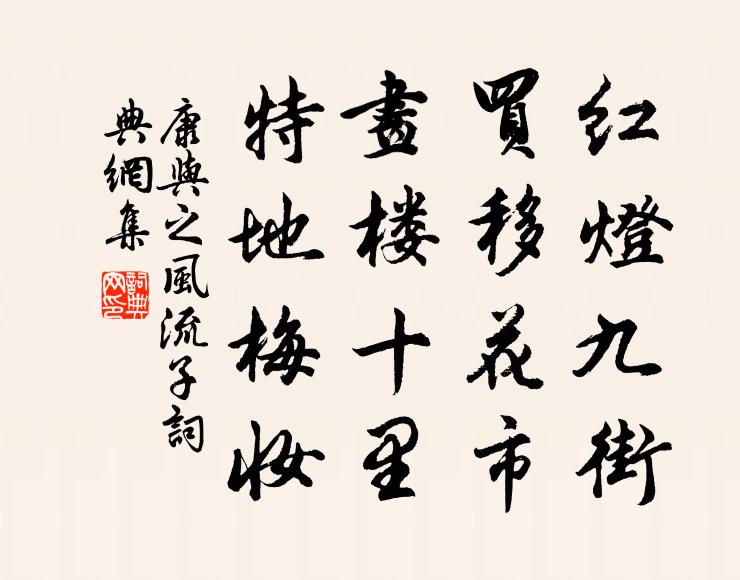 红燈九街
買移花市
畫楼十里
特地梅妆
康與之風流子詞
典網集
詞典网印